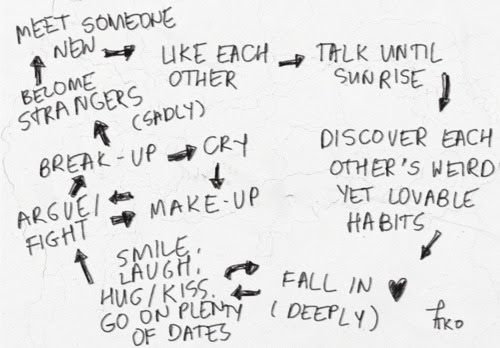 MEET SOMEONE
NEW
LIKE EACH
OTHER
TALK UNTIL
SUNRISE
DISCOVER EACH
OTHER'S WEIRD
YET LOVABLE
HABITS
FALL IN
(DEEPLY)
SMILE,
LAUGH,
HUG/KISS.
GO ON PLENTY
OF DATES
ARGUE/
FIGHT
MAKE-UP
BREAK-UP
CRY
(SADLY)
BECOME
STRANGERS